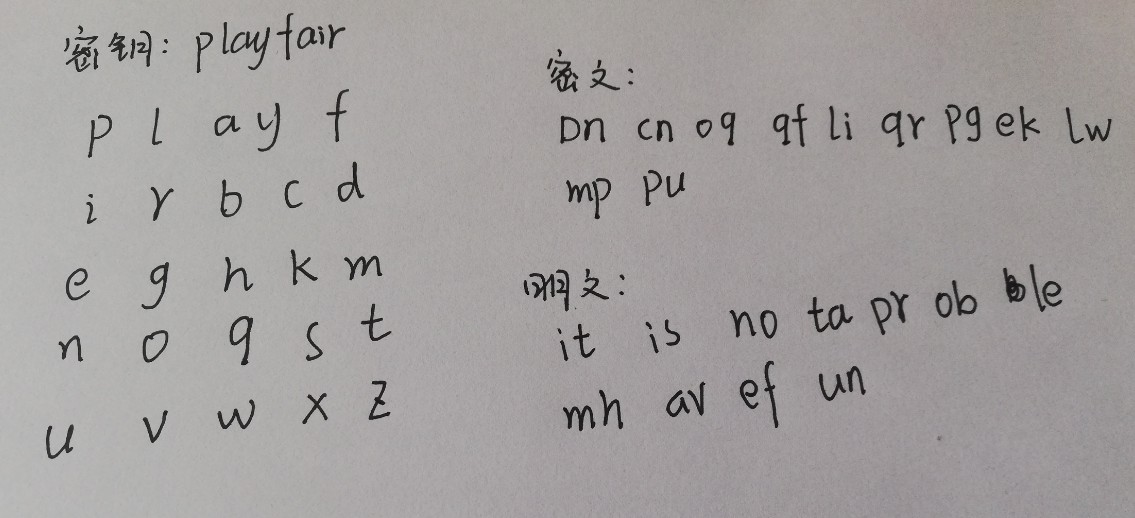 密钥: playfair
p l a y f
i r b c d
e g h k m
n o q s t
u v w x z
密文:
Dn cn oq qf li qr pg ek lw
mp pu
明文:
it is no ta pr ob ble
mh av ef un